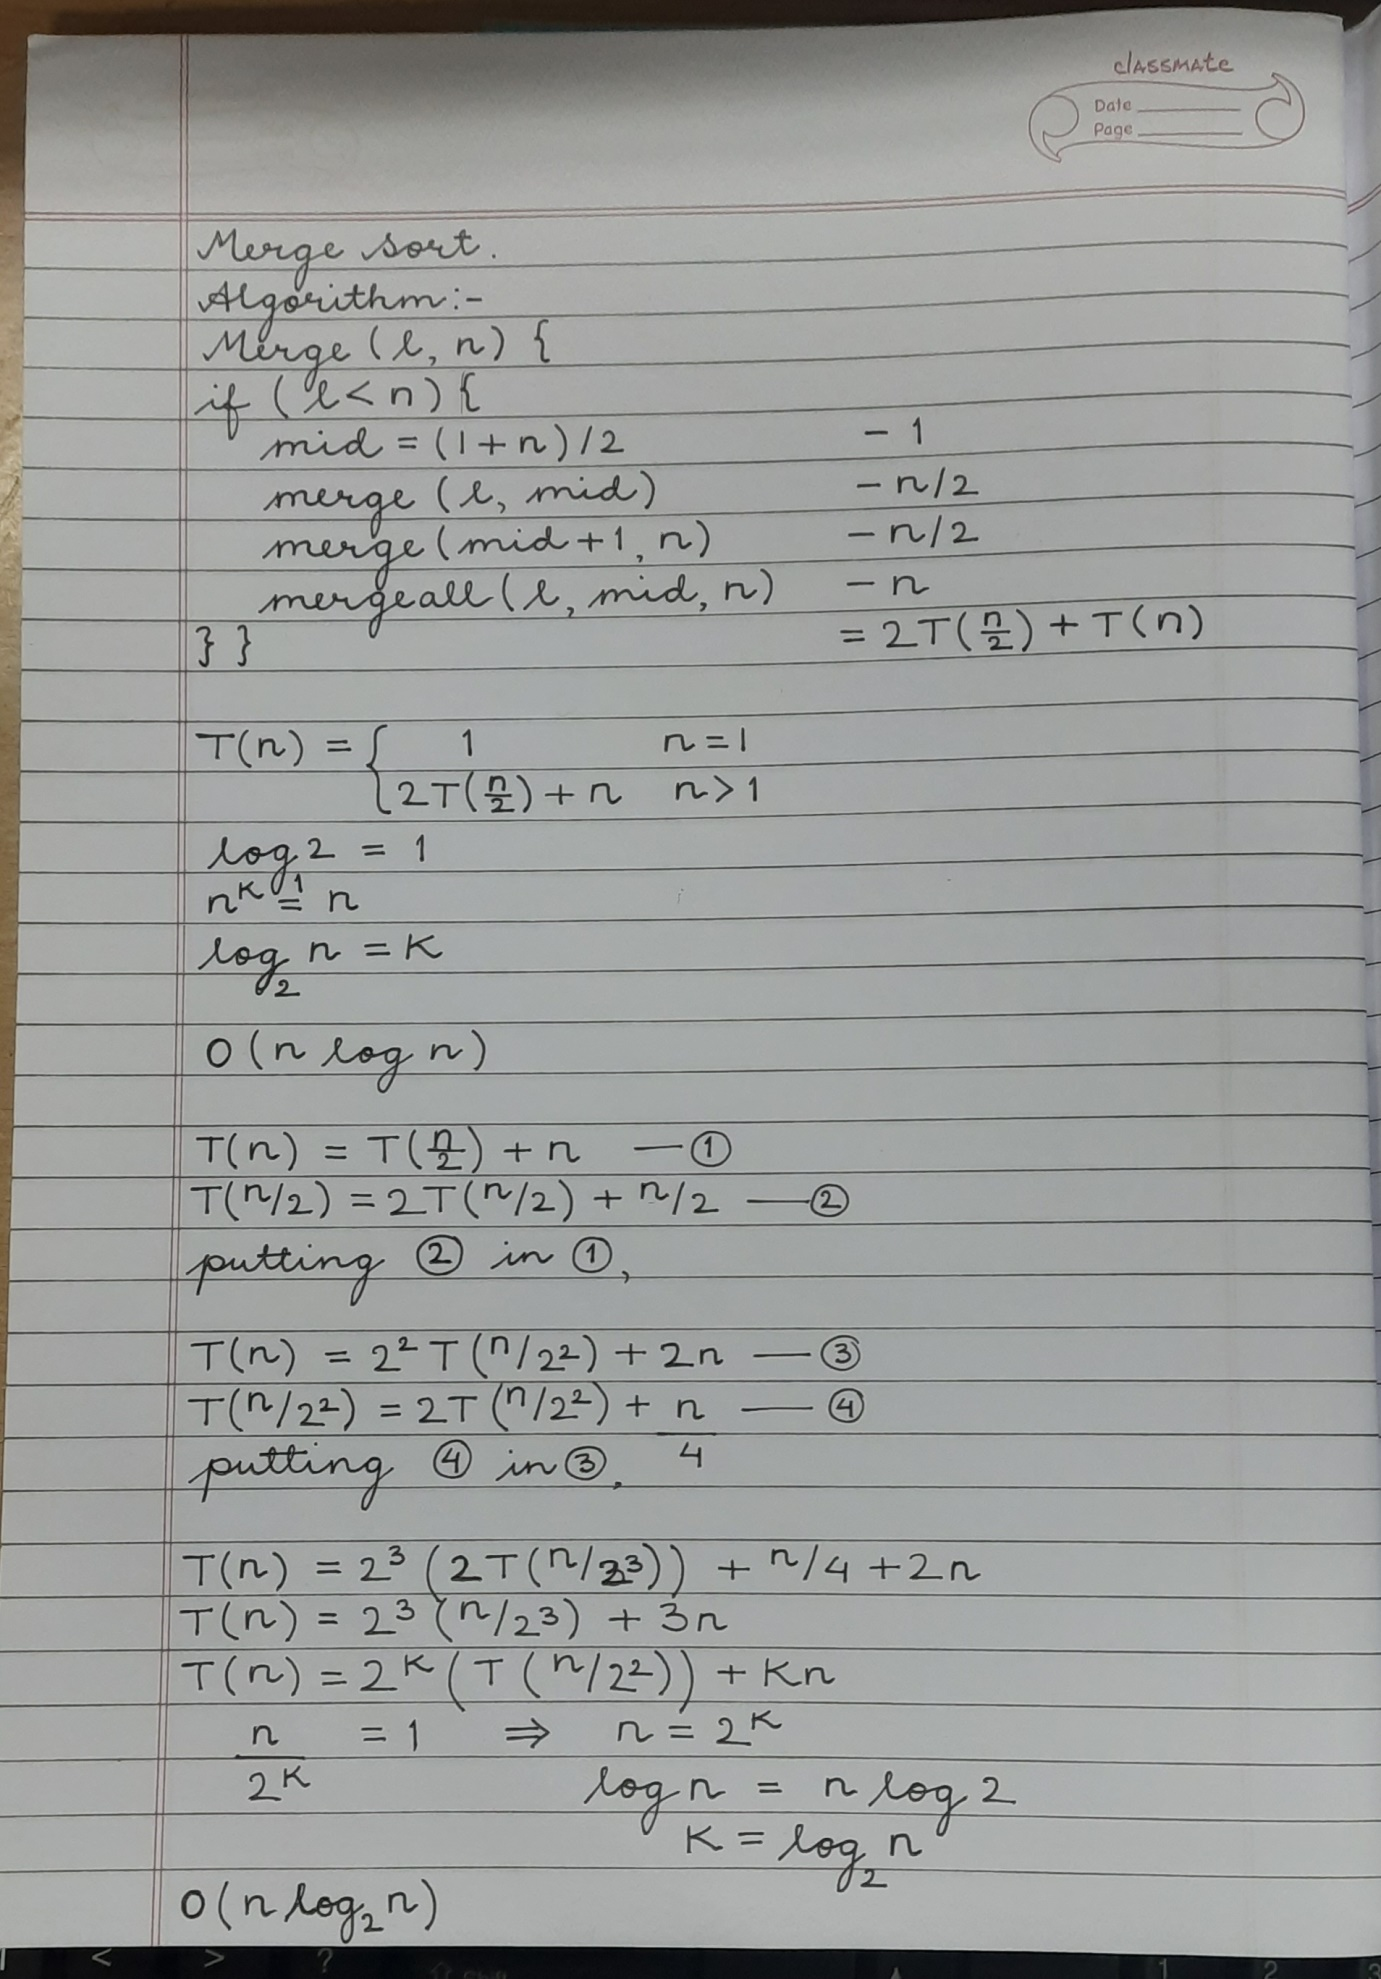 classmate
Date
Page
Merge sort.
Algorithm:-
Merge (l, n) {
if (l < n) {
mid = (l + n) / 2 - 1
merge (l, mid) - n/2
merge (mid + 1, n) - n/2
mergeall (l, mid, n) - n
} } = 2T(n/2) + T(n)
T(n) = { 1 n = 1
2T(n/2) + n n > 1
log 2 = 1
n^K = n^1
log₂ n = K
O (n log n)
T(n) = T(n/2) + n — ①
T(n/2) = 2T(n/2) + n/2 — ②
putting ② in ①,
T(n) = 2² T(n/2²) + 2n — ③
T(n/2²) = 2T(n/2²) + n/4 — ④
putting ④ in ③.
T(n) = 2³ (2T(n/2³)) + n/4 + 2n
T(n) = 2³ (n/2³) + 3n
T(n) = 2^K (T(n/2²)) + Kn
n/2^K = 1 ⇒ n = 2^K
log n = n log 2
K = log₂ n
O(n log₂ n)
< > ? 1 2 3